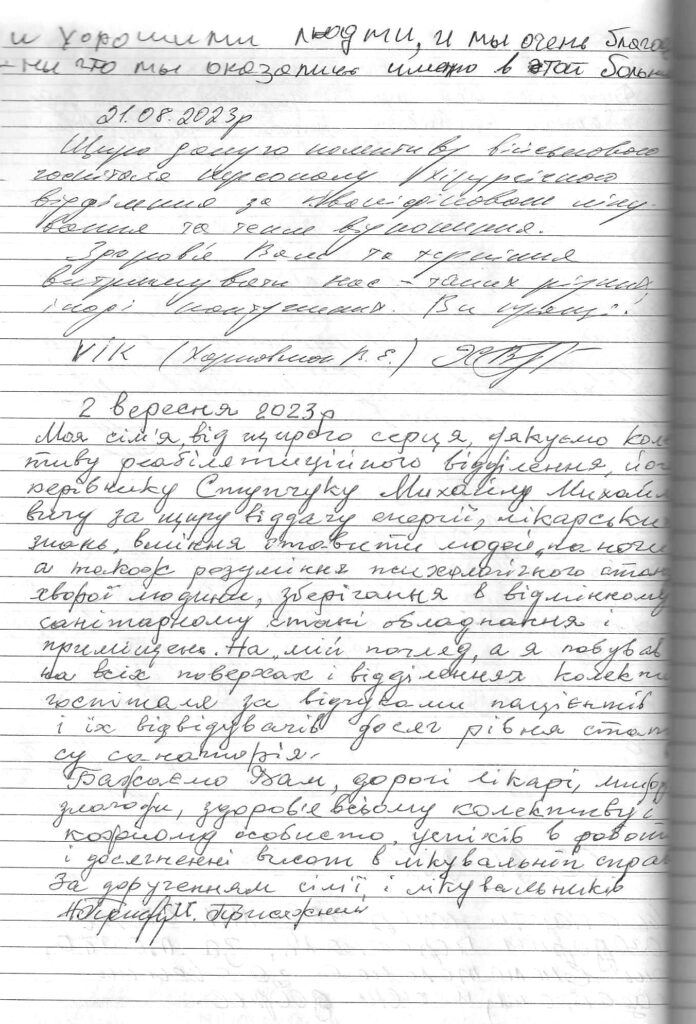 и хорошими людми, и мы очень благод
ни что мы оказались имено в этой больн
21.08.2023р
Щиро дякую колективу військового
госпіталя персоналу хірургічного
відділення за кваліфіковане ліку-
вання та тепле відношення.
Здоров'я Вам та терпіння
витримувати нас – таких різних,
іноді контужених. Ви кращі!
VIK (В. Є.)
2 вересня 2023р
Моя сім'я, від щирого серця, дякуємо коле
тиву реабілітаційного відділення, його
керівнику Ступчуку Михайлу Михайл
вичу за щиру віддачу енергії, лікарських
знань, вміння ставити людей „на ноги
а також розуміння психологічного стан
хворої людини, зберігання в відмінному
санітарному стані обладнання і
приміщень. На мій погляд, а я побував
на всіх поверхах і відділеннях колекти
госпіталя за відгуками пацієнтів
і їх відвідувачів досяг рівня стат
су санаторія.
Бажаємо Вам, дорогі лікарі, миру,
злагоди, здоров'я всьому колективу і
кожному особисто, успіхів в робот
і досягненні висот в лікувальній справ
За дорученням сім'ї, і лікувальників